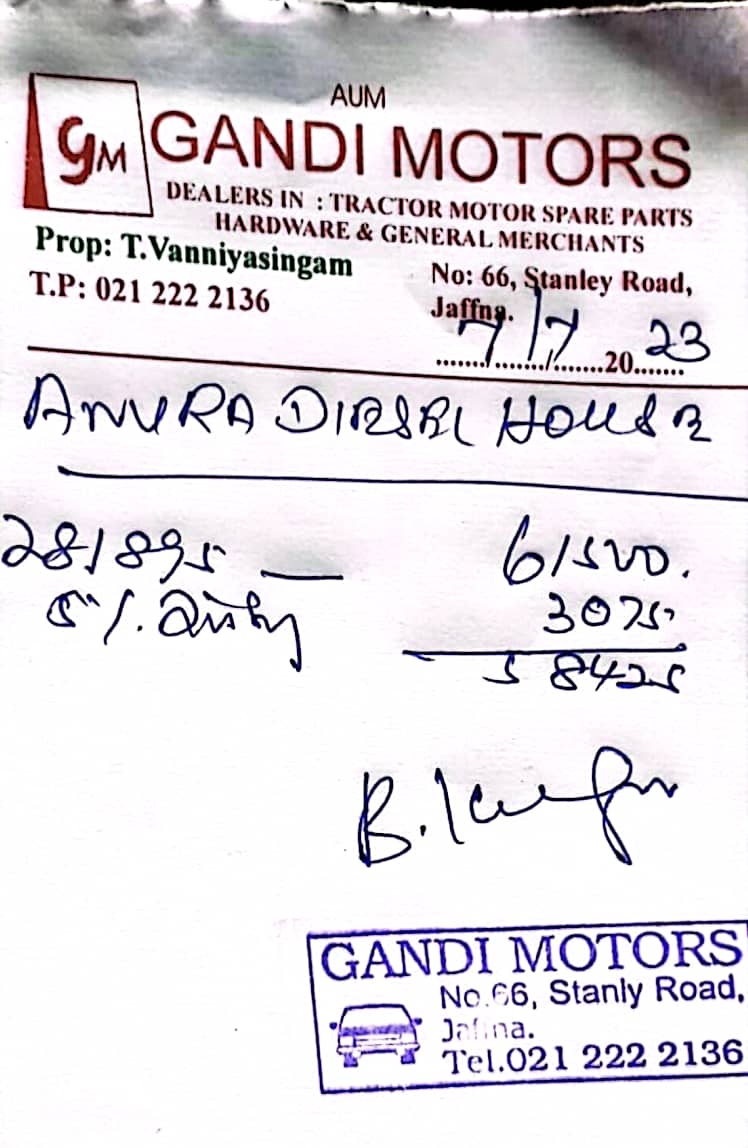 AUM
GM GANDI MOTORS
DEALERS IN : TRACTOR MOTOR SPARE PARTS
HARDWARE & GENERAL MERCHANTS
Prop: T.Vanniyasingam
T.P: 021 222 2136
No: 66, Stanley Road,
Jaffna.
7/7 2023
ANURA DIESEL HOUSE
281895 — 61500.
5%. 3075
58425
GANDI MOTORS
No.66, Stanly Road,
Jaffna.
Tel.021 222 2136